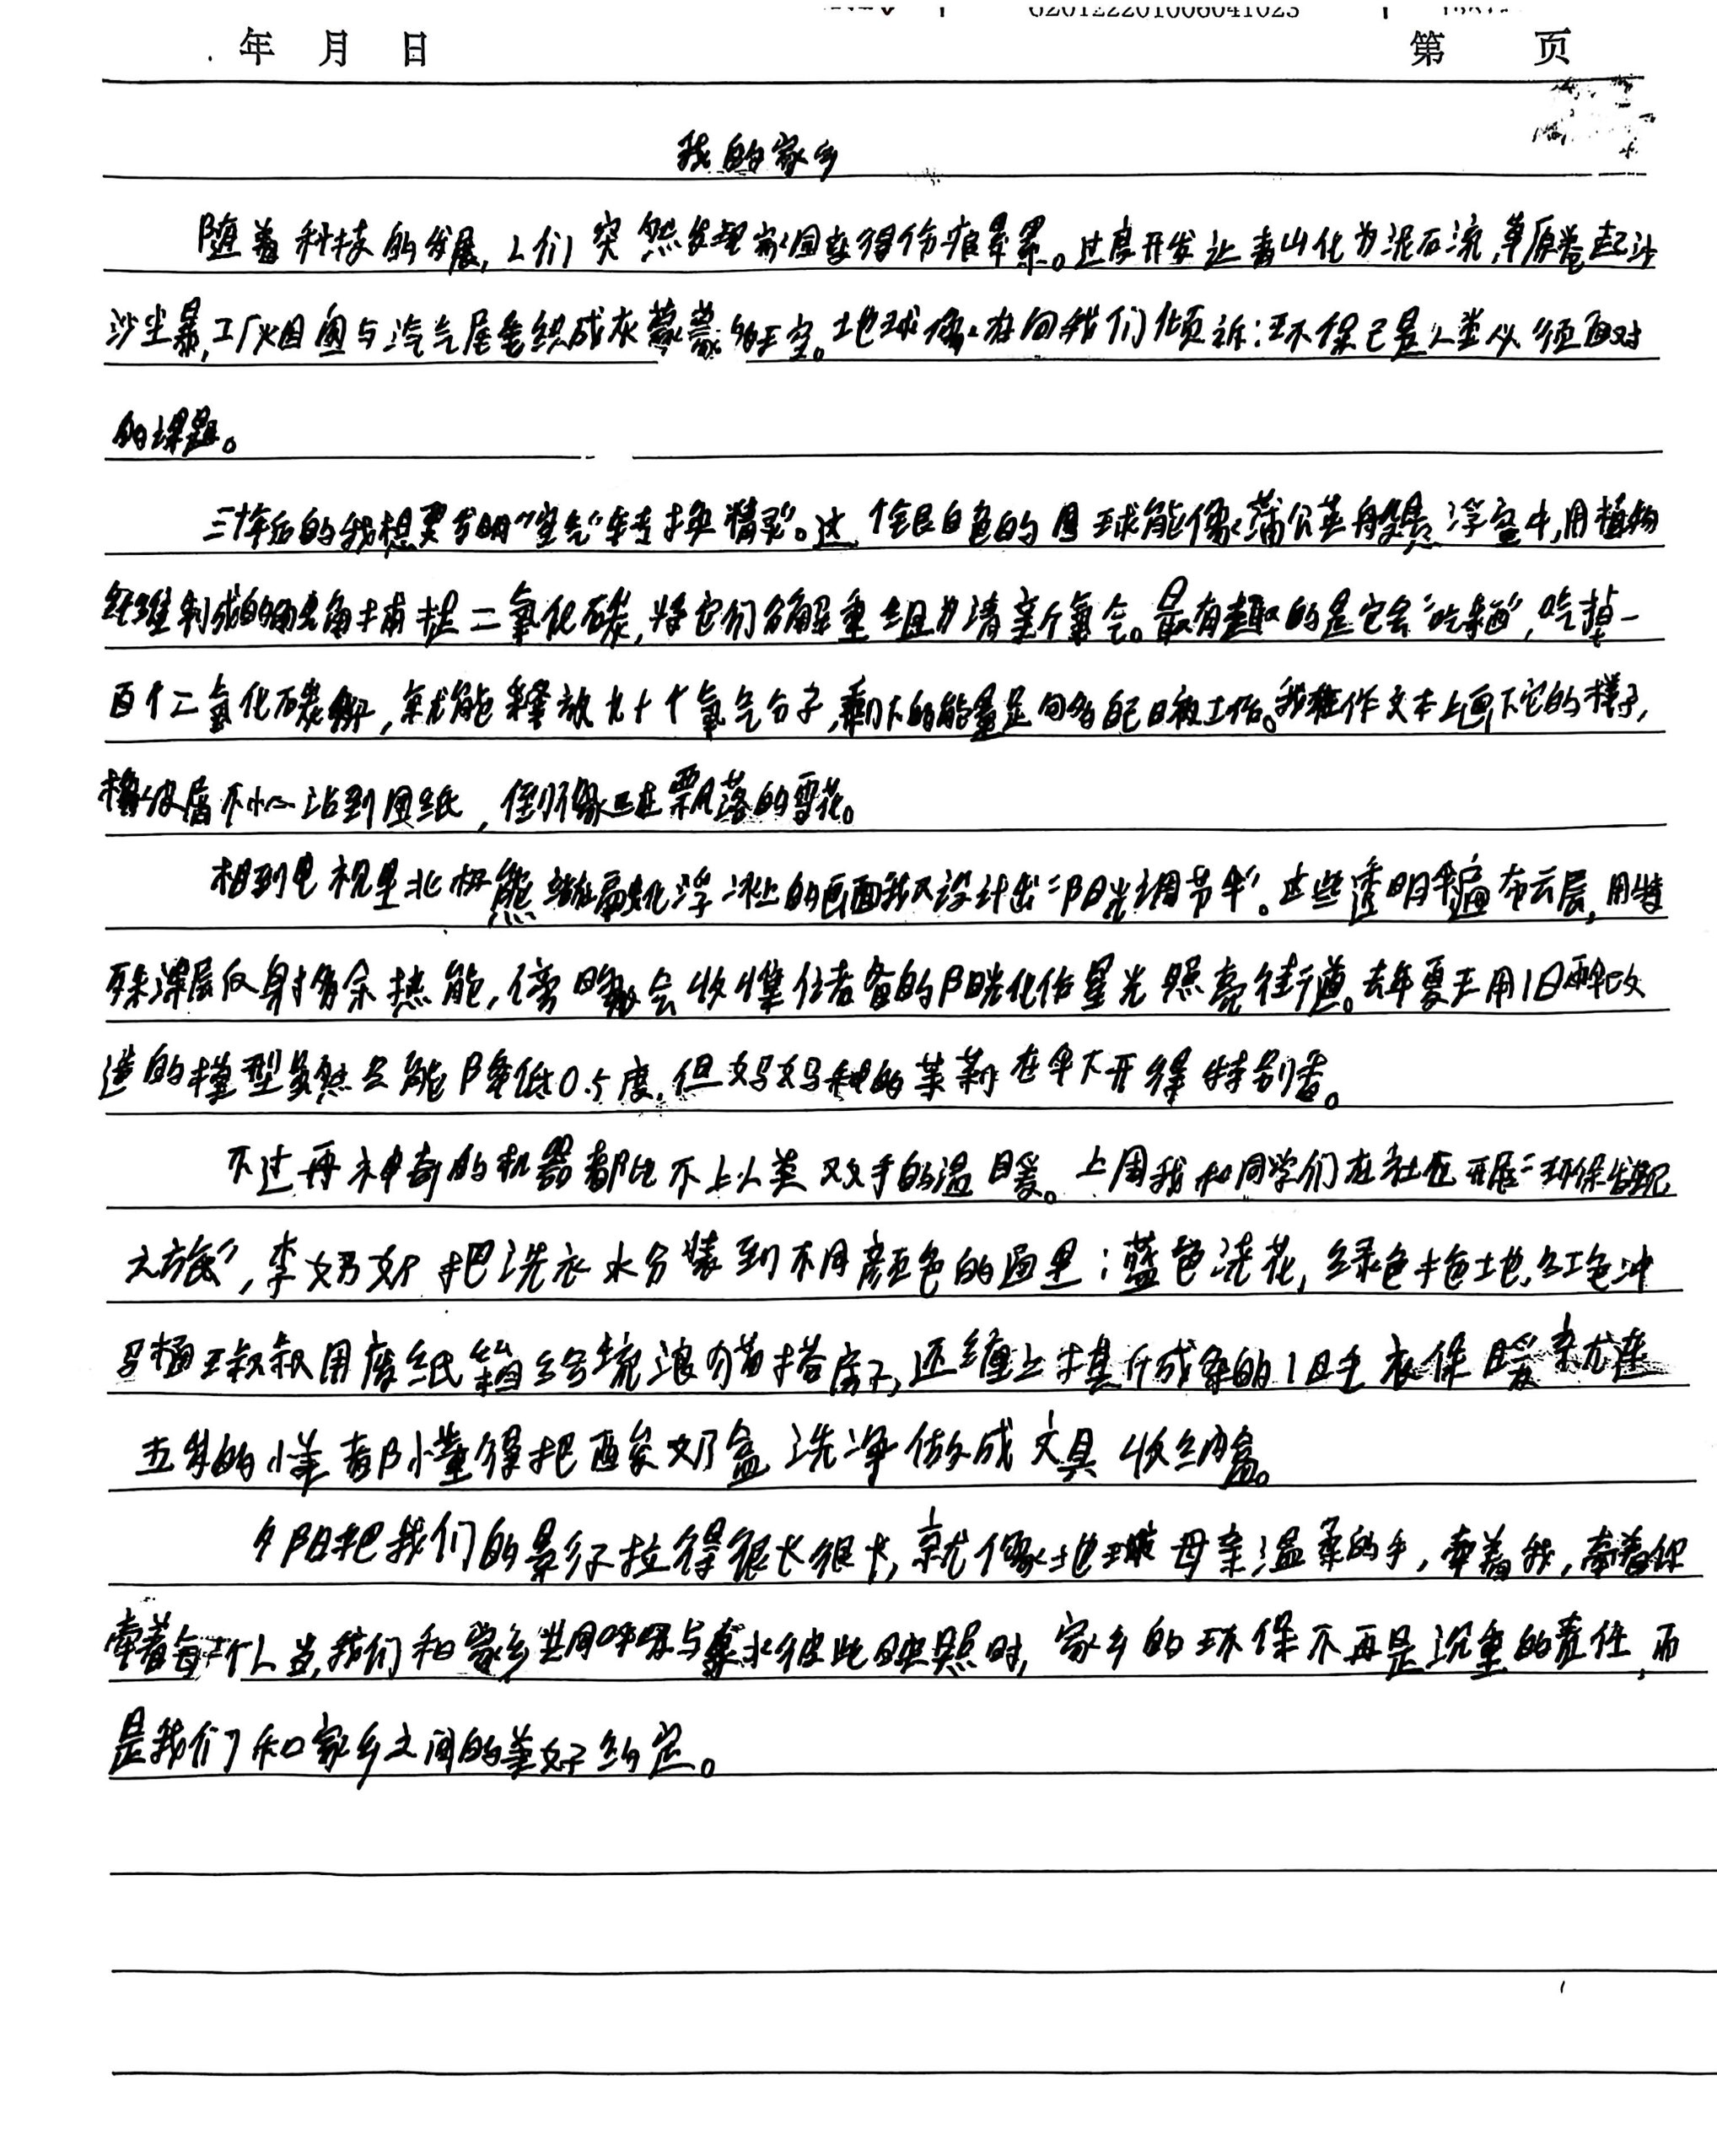 年 月 日 第 页
我的家乡
随着科技的发展,人们突然发现家园变得伤痕累累。过度开发让青山化为泥石流,草原卷起沙
沙尘暴,工厂烟囱与汽气尾气织成灰蒙蒙的天空。地球像在向我们倾诉:环保已是人类必须面对
的课题。
三十年后的我想要发明“空气”转换精灵”。这个银白色的圆球能像蒲公英般悬浮空中,用植物
纤维制成的触角捕捉二氧化碳,将它们分解重组为清新氧气。最有趣的是它会“吃素”,吃掉一
百个二氧化碳分子,就能释放九十个氧气分子,剩下的能量足够自己日夜工作。我在作文本上画下它的样子,
橡皮屑不小心沾到图纸,倒像正在飘落的雪花。
想到电视里北极熊站在融化浮冰上的画面我又设计出“阳光调节伞”。这些透明伞遍布云层,用特
殊涂层反射多余热能,傍晚会收集储备的阳光化作星光照亮街道。去年夏天用旧雨伞改
造的模型虽然只能降低0.5度,但妈妈种的茉莉在伞下开得特别香。
不过再神奇的机器都比不上人类双手的温暖。上周我和同学们在社区开展“环保发现
之旅”,李奶奶把洗衣水分装到不同颜色的桶里:蓝色浇花,绿色拖地,红色冲
马桶王叔叔用废纸箱给流浪猫搭房子,还缠上拆成条的旧毛衣保暖就连
五岁的小美都小懂得把酸奶盒洗净做成文具收纳盒。
夕阳把我们的影子拉得很长很长,就像地球母亲温柔的手,牵着我,牵着你
牵着每一个人当,我们和家乡共同呼吸与绿水彼此映照时,家乡的环保不再是沉重的责任,而
是我们和家乡之间的美好约定。